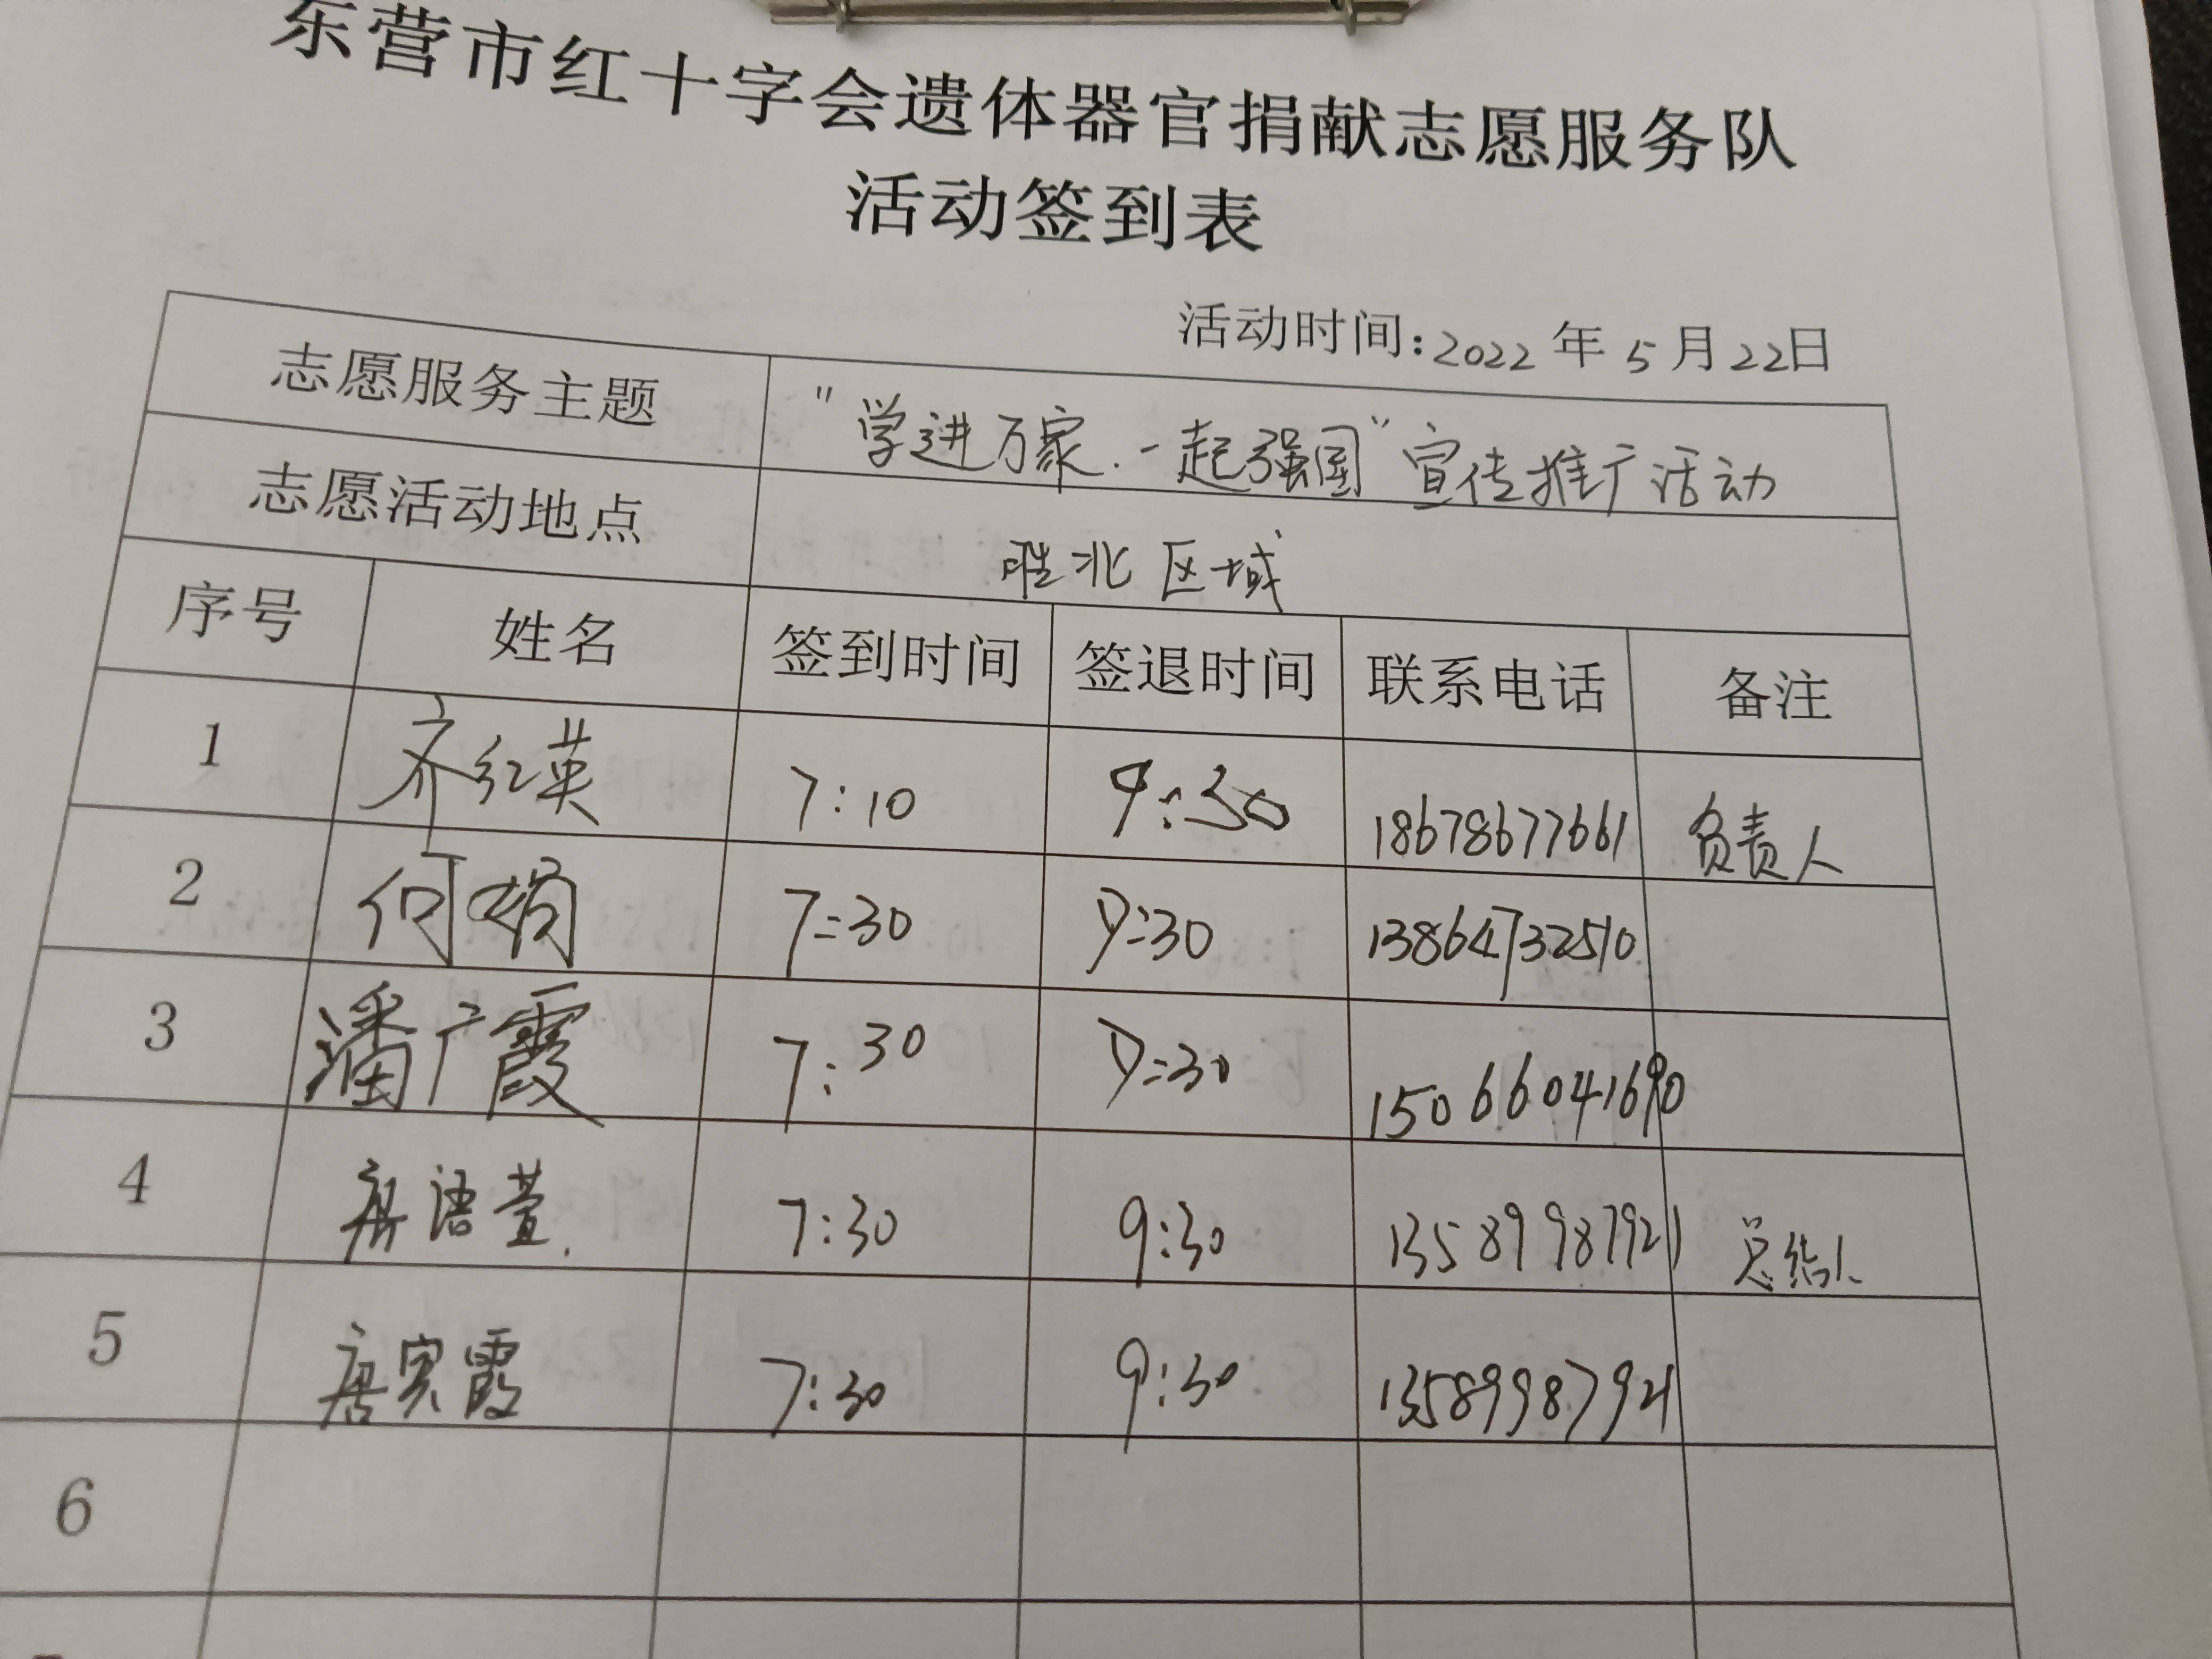 东营市红十字会遗体器官捐献志愿服务队
活动签到表
活动时间:2022年5月22日
志愿服务主题 "学进万家.一起强国"宣传推广活动
志愿活动地点 胜北区域
序号 姓名 签到时间 签退时间 联系电话 备注
1 齐红英 7:10 9:30 18678677661 负责人
2 何娟 7:30 9:30 13864732510
3 潘广霞 7:30 9:30 15066041690
4 语萱 7:30 9:30 13589987921 总结人
5 霞 7:30 9:30 13589987921
6